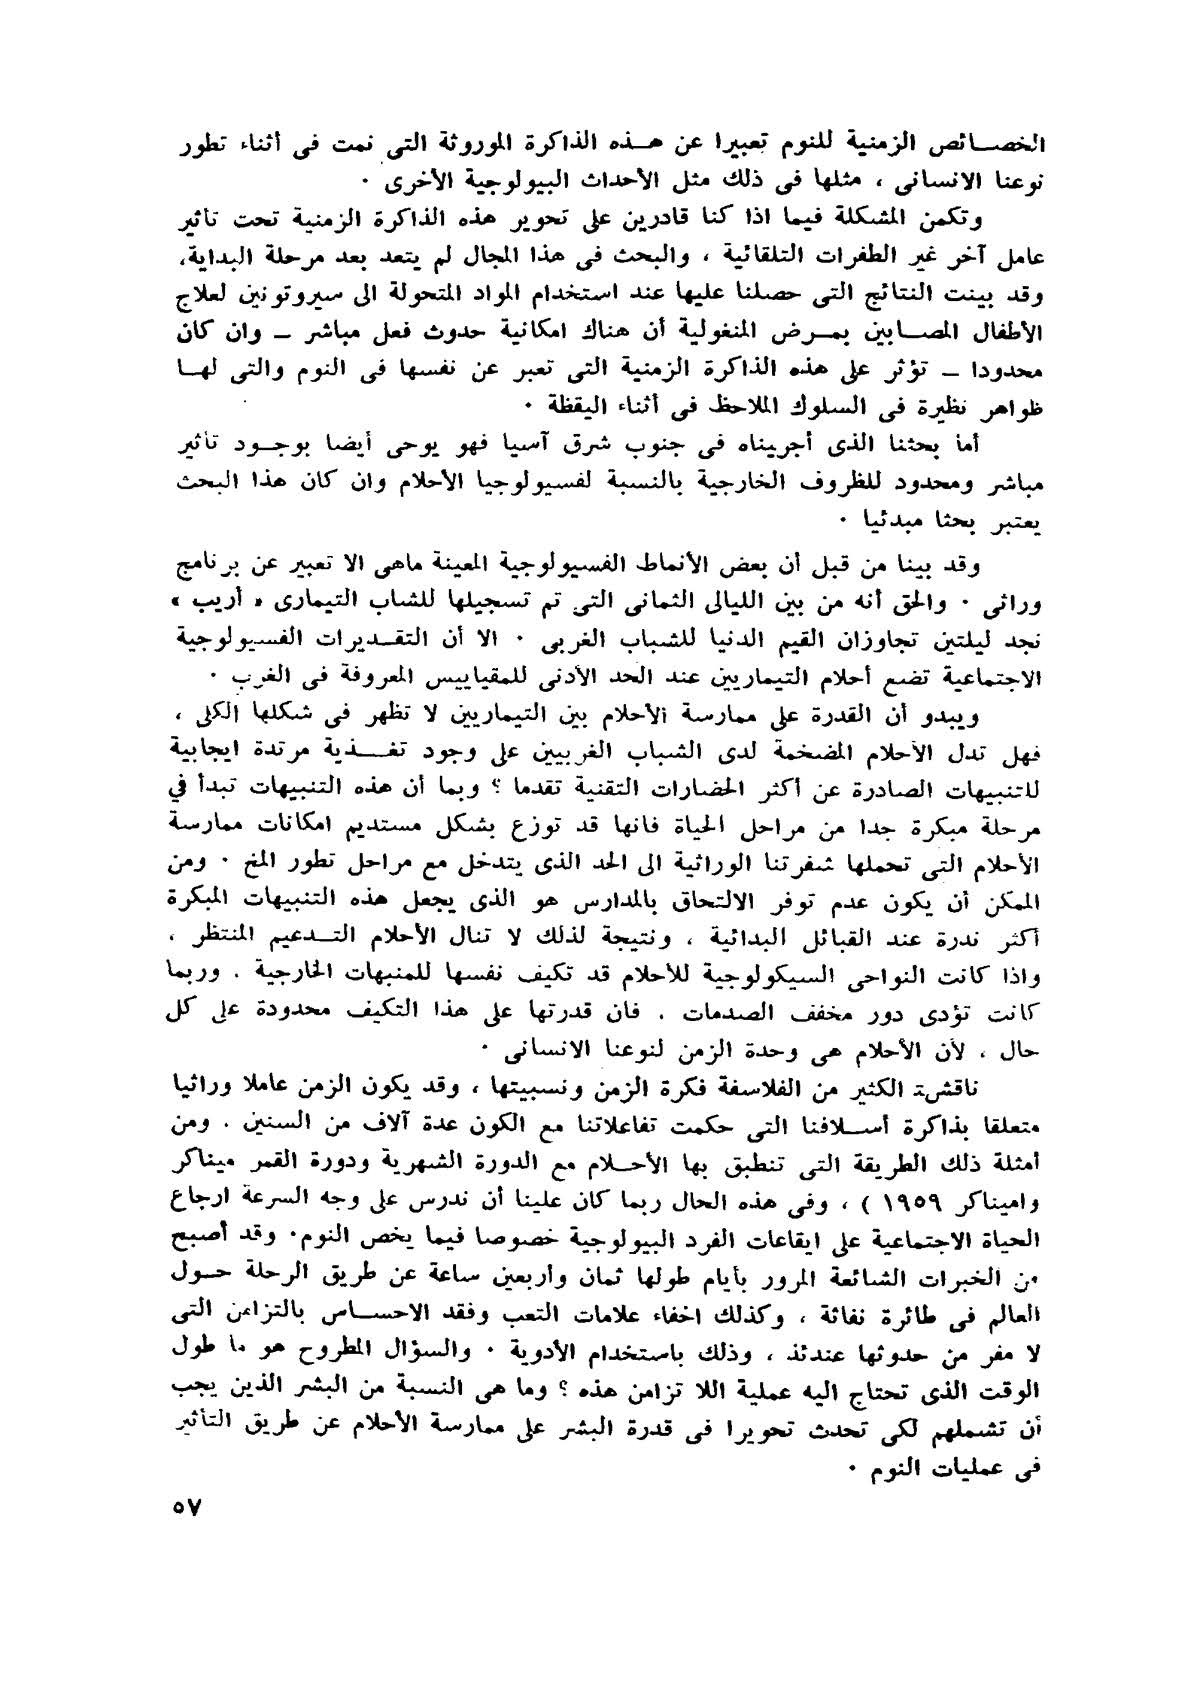 الخصــائص الزمنية للنوم تعبيرا عن هــذه الذاكرة الموروثة التى نمت فى أثناء تطور
نوعنا الانسانى ، مثلها فى ذلك مثل الأحداث البيولوجية الأخرى ٠
وتكمن المشكلة فيما اذا كنا قادرين على تحوير هذه الذاكرة الزمنية تحت تأثير
عامل آخر غير الطفرات التلقائية ، والبحث فى هذا المجال لم يتعد بعد مرحلة البداية،
وقد بينت النتائج التى حصلنا عليها عند استخدام المواد المتحولة الى سيروتونين لعلاج
الأطفال المصــابين بمــرض المنغولية أن هناك امكانية حدوث فعل مباشر – وان كان
محدودا – تؤثر على هذه الذاكرة الزمنية التى تعبر عن نفسها فى النوم والتى لهــا
ظواهر نظيرة فى السلوك الملاحظ فى أثناء اليقظة ٠
أما بحثنا الذى أجريناه فى جنوب شرق آسيا فهو يوحى أيضا بوجــود تأثير
مباشر ومحدود للظروف الخارجية بالنسبة لفسيولوجيا الأحلام وان كان هذا البحث
يعتبر بحثا مبدئيا ٠
وقد بينا من قبل أن بعض الأنماط الفسيولوجية المعينة ماهى الا تعبير عن برنامج
وراثى ٠ والحق أنه من بين الليالى الثمانى التى تم تسجيلها للشاب التيمارى « أريب »
نجد ليلتين تجاوزان القيم الدنيا للشباب الغربى ٠ الا أن التقــديرات الفسيولوجية
الاجتماعية تضع أحلام التيماريين عند الحد الأدنى للمقياييس المعروفة فى الغرب ٠
ويبدو أن القدرة على ممارسة الأحلام بين التيماريين لا تظهر فى شكلها الكلى ،
فهل تدل الأحلام المضخمة لدى الشباب الغربيين على وجود تغــذية مرتدة ايجابية
للتنبيهات الصادرة عن أكثر الحضارات التقنية تقدما ؟ وبما أن هذه التنبيهات تبدأ في
مرحلة مبكرة جدا من مراحل الحياة فانها قد توزع بشكل مستديم امكانات ممارسة
الأحلام التى تحملها شفرتنا الوراثية الى الحد الذى يتدخل مع مراحل تطور المخ ٠ ومن
الممكن أن يكون عدم توفر الالتحاق بالمدارس هو الذى يجعل هذه التنبيهات المبكرة
أكثر ندرة عند القبائل البدائية ، ونتيجة لذلك لا تنال الأحلام التــدعيم المنتظر ،
واذا كانت النواحى السيكولوجية للأحلام قد تكيف نفسها للمنبهات الخارجية ، وربما
كانت تؤدى دور مخفف الصدمات ، فان قدرتها على هذا التكيف محدودة على كل
حال ، لأن الأحلام هى وحدة الزمن لنوعنا الانسانى ٠
ناقشت الكثير من الفلاسفة فكرة الزمن ونسبيتها ، وقد يكون الزمن عاملا وراثيا
متعلقا بذاكرة أســلافنا التى حكمت تفاعلاتنا مع الكون عدة آلاف من السنين ، ومن
أمثلة ذلك الطريقة التى تنطبق بها الأحــلام مع الدورة الشهرية ودورة القمر ميناكر
واميناكر ١٩٥٩ ) ، وفى هذه الحال ربما كان علينا أن ندرس على وجه السرعة ارجاع
الحياة الاجتماعية على ايقاعات الفرد البيولوجية خصوصا فيما يخص النوم٠ وقد أصبح
من الخبرات الشائعة المرور بأيام طولها ثمان وأربعين ساعة عن طريق الرحلة حــول
العالم فى طائرة نفاثة ، وكذلك اخفاء علامات التعب وفقد الاحســاس بالتزامن التى
لا مفر من حدوثها عندئذ ، وذلك باستخدام الأدوية ٠ والسؤال المطروح هو ما طول
الوقت الذى تحتاج اليه عملية اللا تزامن هذه ؟ وما هى النسبة من البشر الذين يجب
أن تشملهم لكى تحدث تحويرا فى قدرة البشر على ممارسة الأحلام عن طريق التأثير
فى عمليات النوم ٠
٥٧